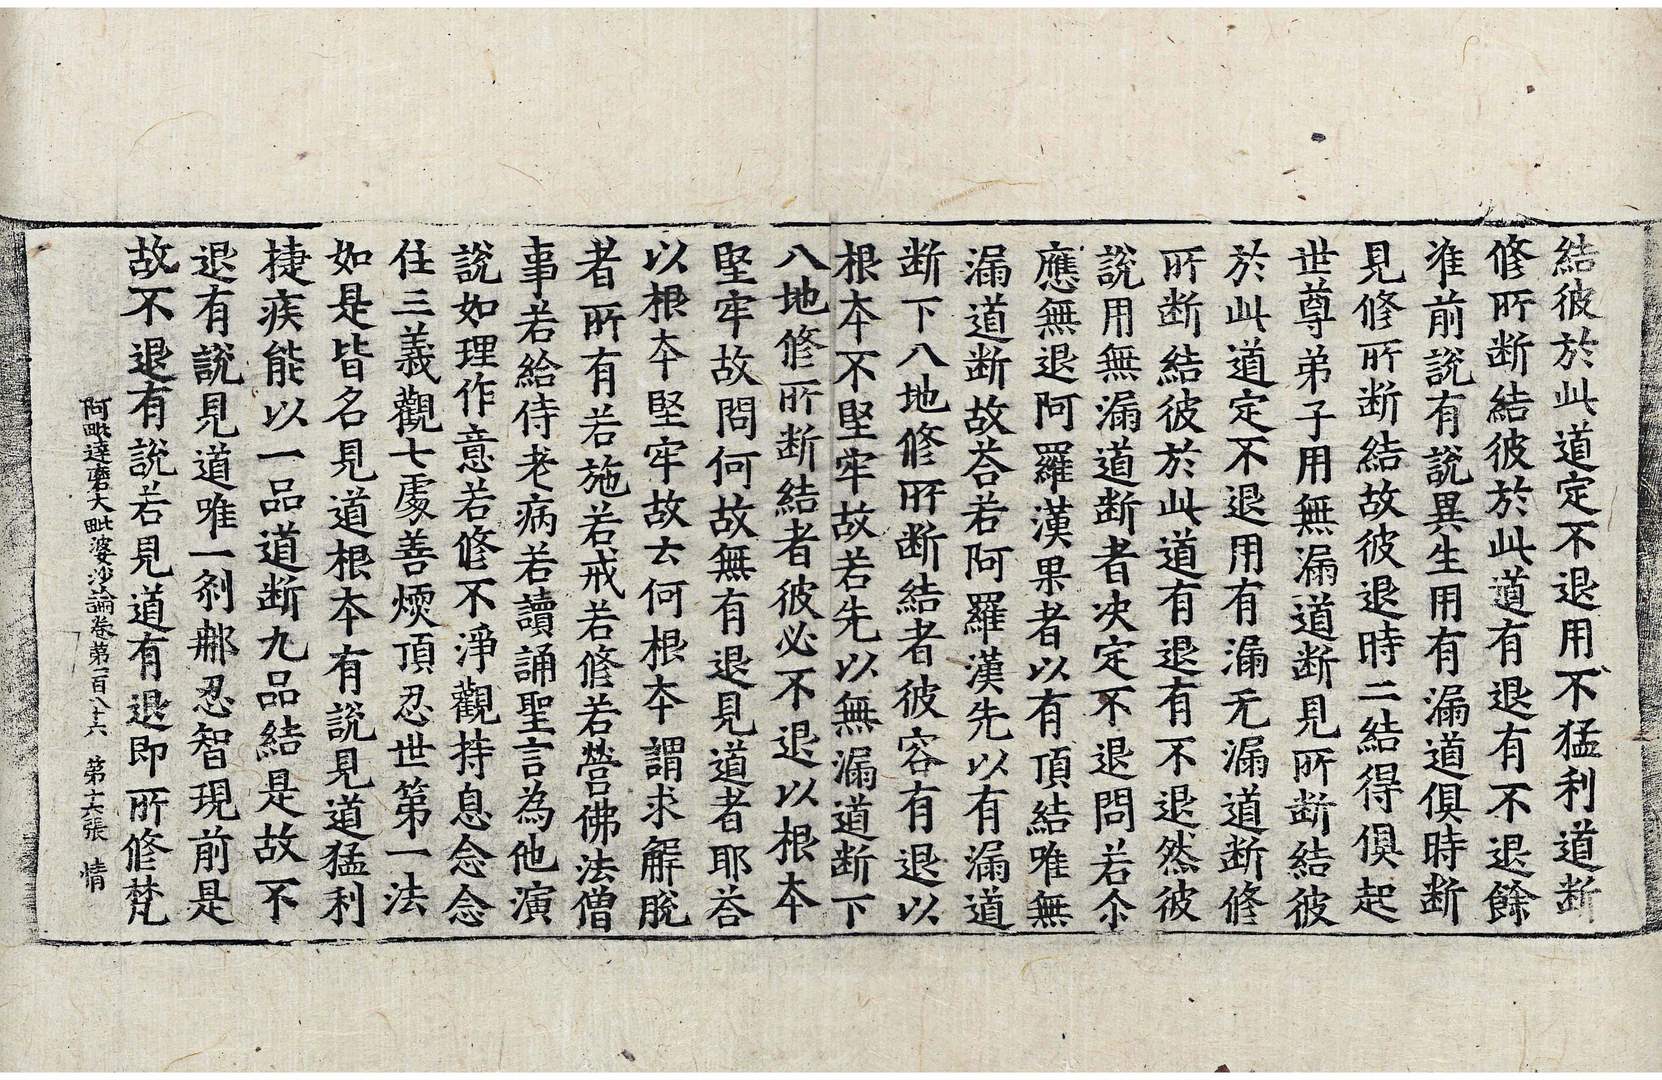 結彼於此道定不退用不猛利道断
修所断結彼於此道有退有不退餘
准前說有說異生用有漏道俱時断
見修所断結故彼退時二結得俱起
世尊弟子用無漏道断見所断結彼
於此道定不退用有漏无漏道断修
所断結彼於此道有退有不退然彼
說用無漏道断者决定不退問若尒
應無退阿羅漢果者以有頂結唯無
漏道断故荅若阿羅漢先以有漏道
断下八地修所断結者彼容有退以
根本不堅牢故若先以無漏道断下
八地修所断結者彼必不退以根本
堅牢故問何故無有退見道者耶荅
以根本堅牢故云何根本謂求解脫
者所有若施若戒若修若營佛法僧
事若給侍老病若讀誦聖言為他演
說如理作意若修不淨觀持息念念
住三義觀七處善煗頂忍世第一法
如是皆名見道根本有說見道猛利
捷疾能以一品道断九品結是故不
退有說見道唯一剎那忍智現前是
故不退有說若見道有退即所修梵
阿毗達磨大毗婆沙論卷第一百八十六 第十六張 情